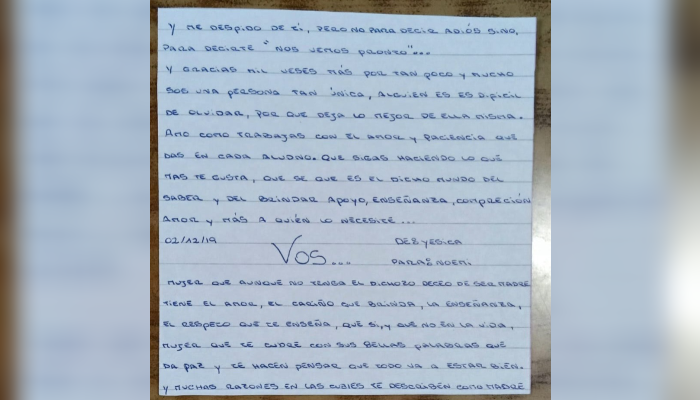 Y ME DESPIDO DE TÍ, PERO NO PARA DECIR ADIÓS SINO,
PARA DECIRTE "NOS VEMOS PRONTO"...
Y GRACIAS MIL VESES MÁS POR TAN POCO Y MUCHO
SOS UNA PERSONA TAN ÚNICA, ALGUIEN ES ES DIFICIL
DE OLVIDAR, POR QUE DEJA LO MEJOR DE ELLA MISMA.
AMO COMO TRABAJAS CON EL AMOR Y PACENCIA QUE
DAS EN CADA ALUDNO. QUE SIGAS HACIENDO LO QUE
MAS TE GUSTA, QUE SE QUE ES EL DICHO MUNDO DEL
SABER Y DEL BRINDAR APOYO, ENSEÑANZA, COMPRECIÓN
AMOR Y MÁS A QUIÉN LO NECESITE...
02/12/19 DE: YESICA
VOS... PARA: NOEMI
MUJER QUE AUNQUE NO TENGA EL DICHOZO DECEO DE SER MADRE
TIENE EL AMOR, EL CARIÑO QUE BRINDA, LA ENSEÑANZA,
EL RESPECO QUE TE ENSEÑA, QUE SI, Y QUE NO EN LA VIDA,
MUJER QUE TE CUBRE CON SUS BELLAS PALABRAS QUE
DA PAZ Y TE HACEN PENSAR QUE TODO VA A ESTAR BIEN.
Y MUCHAS RAZONES EN LAS CUALES TE DESCRIBEN COMO MADRE